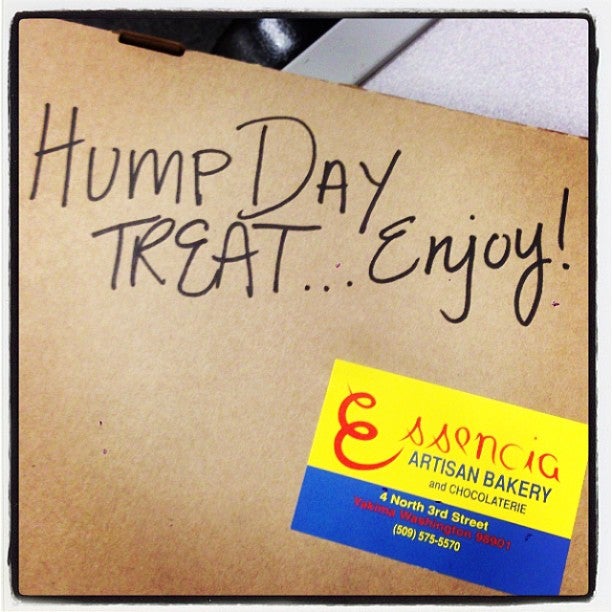 HUMP DAY
TREAT... Enjoy!
Essencia
ARTISAN BAKERY
and CHOCOLATERIE
4 North 3rd Street
Yakima Washington 98901
(509) 575-5570